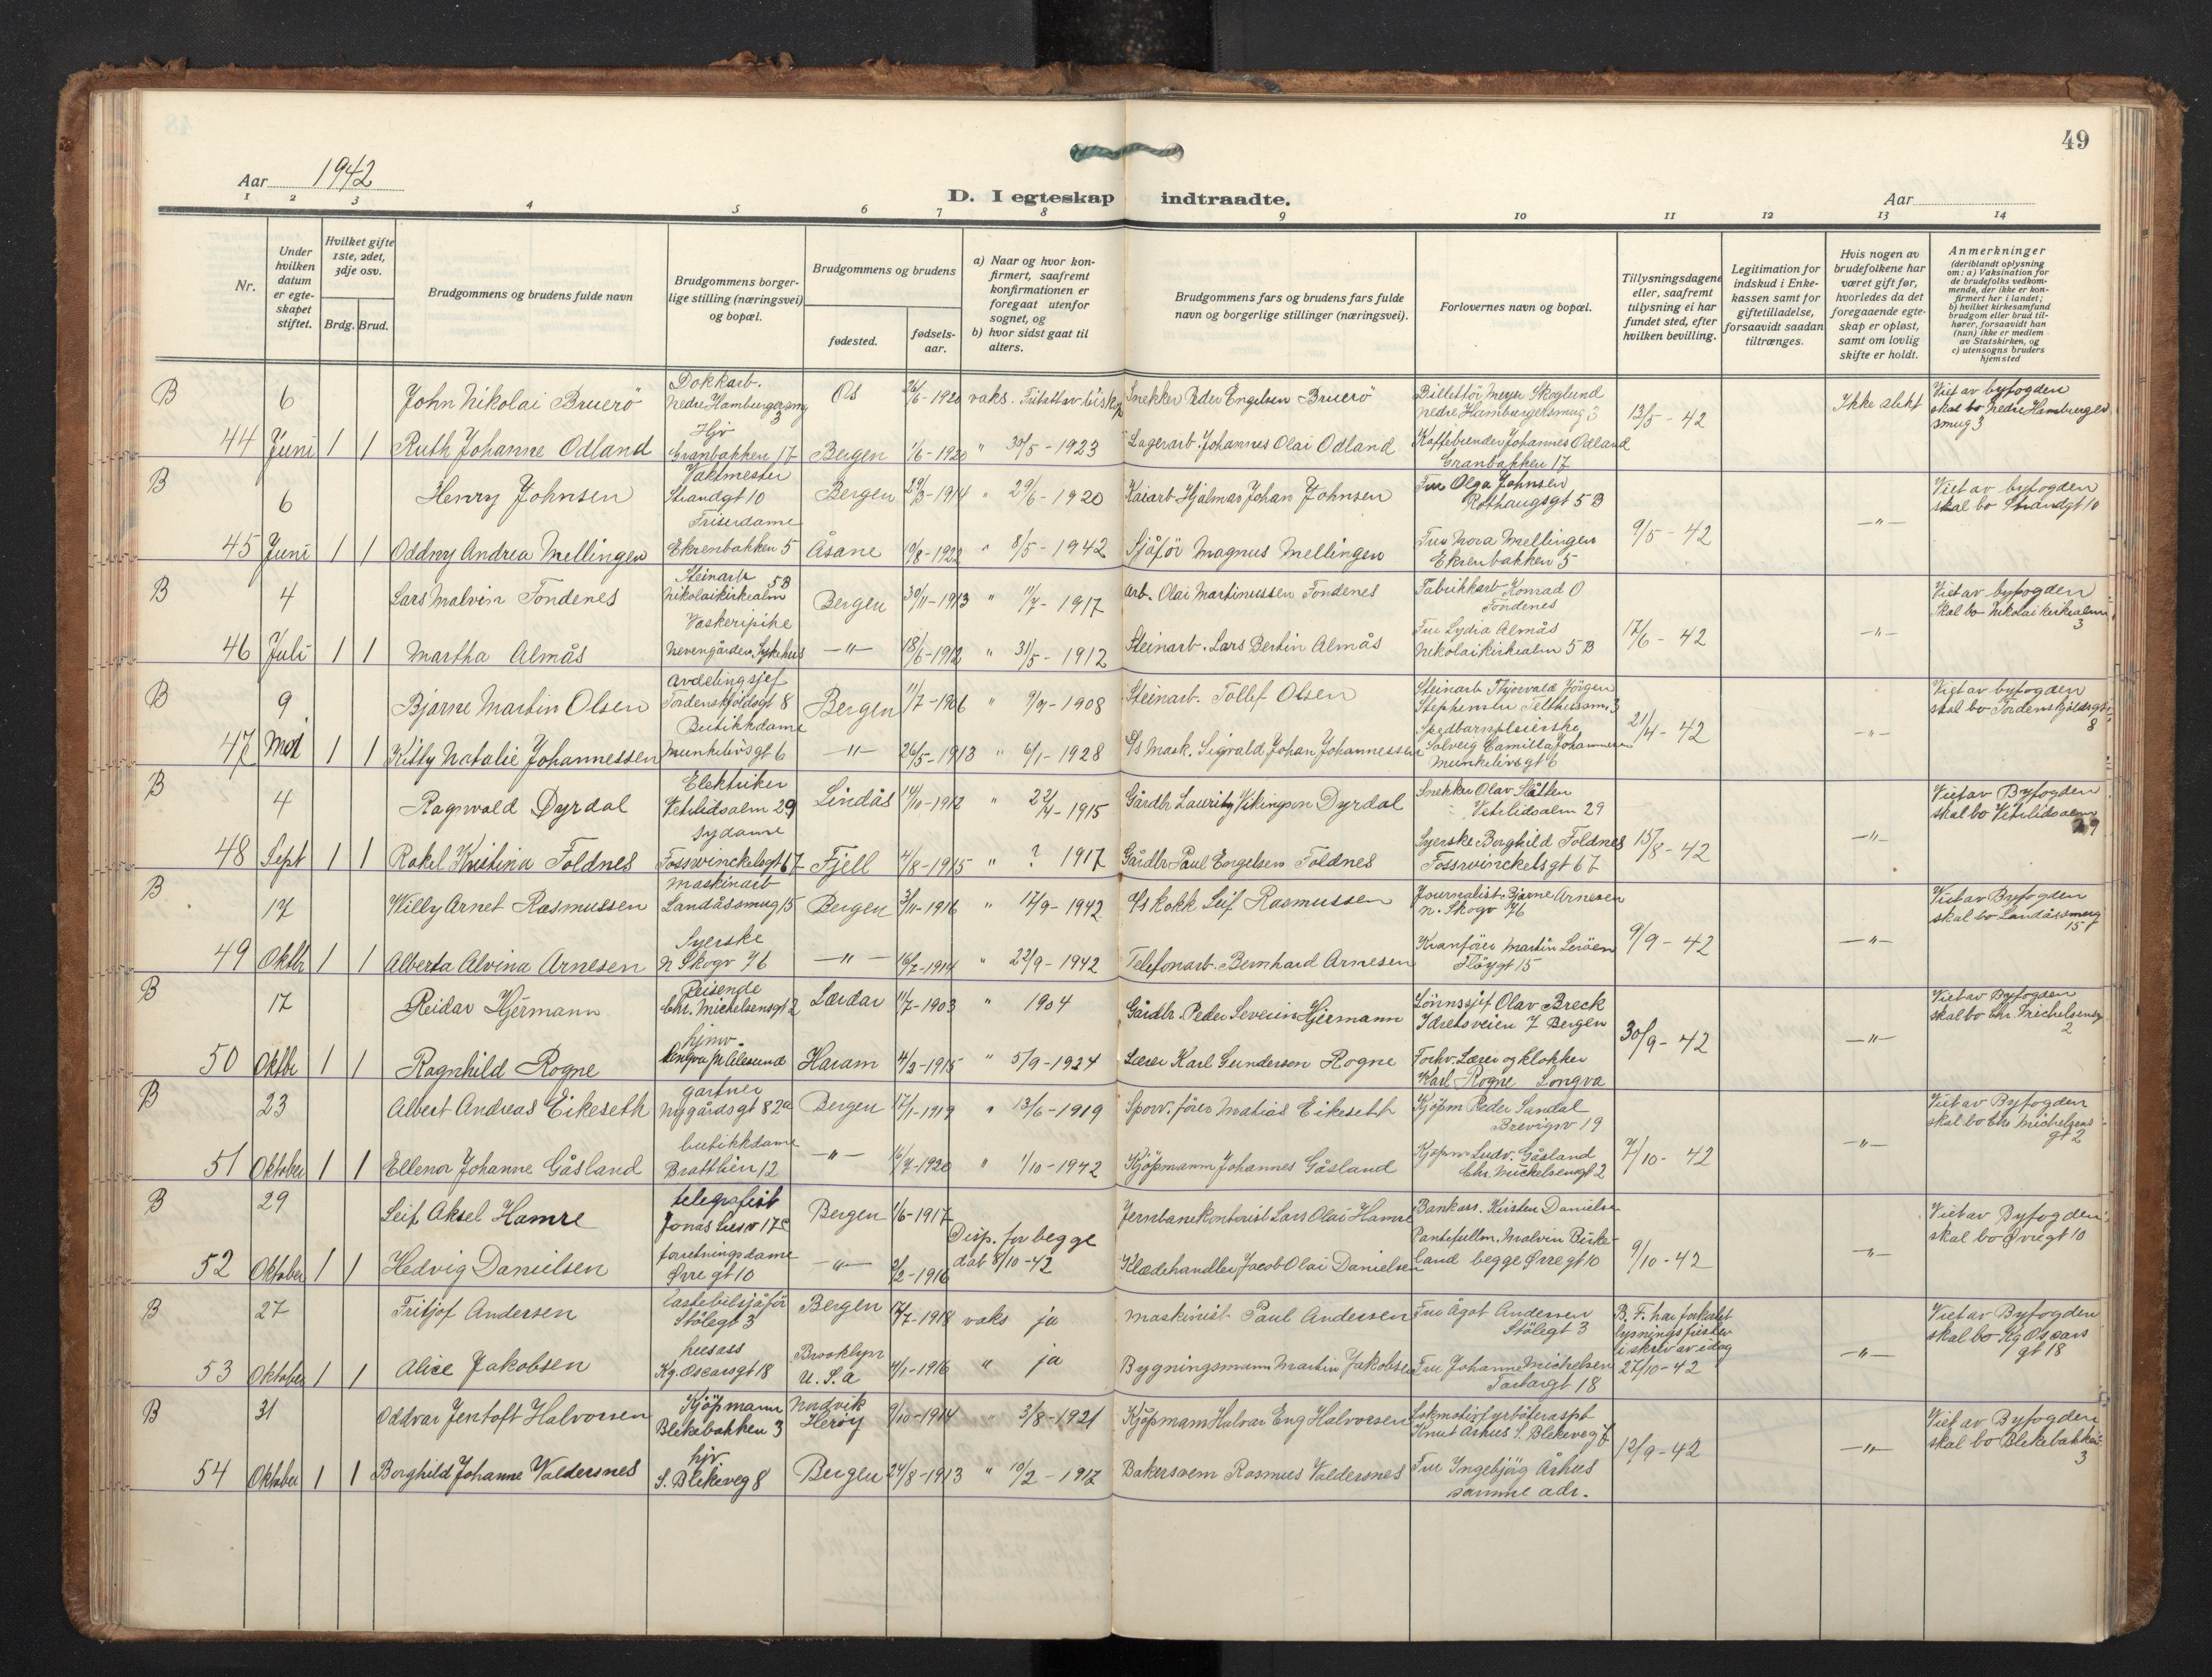 49
Aar 1942
D. I egteskap indtraadte.
Aar
1 2 3 4 5 6 7 8 9 10 11 12 13 14
Nr.
Under hvilken datum er egte-skapet stiftet.
Hvilket gifte 1ste, 2det, 3dje osv.
Brdg. Brud.
Brudgommens og brudens fulde navn
Brudgommens borger-lige stilling (næringsvei) og bopæl.
Brudgommens og brudens
fødested.
fødsels-aar.
a) Naar og hvor kon-firmert, saafremt konfirmationen er foregaat utenfor sognet, og
b) hvor sidst gaat til alters.
Brudgommens fars og brudens fars fulde navn og borgerlige stillinger (næringsvei).
Forlovernes navn og bopæl.
Tillysningsdagene eller, saafremt tillysning ei har fundet sted, efter hvilken bevilling.
Legitimation for indskud i Enke-kassen samt for giftetilladelse, forsaavidt saadan tiltrænges.
Hvis nogen av brudefolkene har været gift før, hvorledes da det foregaaende egte-skap er opløst, samt om lovlig skifte er holdt.
Anmerkninger
(deriblandt oplysning om: a) Vaksination for de brudefolks vedkom-mende, der ikke er kon-firmert her i landet; b) hvilket kirkesamfund brudgom eller brud til-hører, forsaavidt han (hun) ikke er medlem av Statskirken, og c) utensogns bruders hjemsted
B 6 John Nikolai Bruerö Dokkarb. Nedre Hamburgersmg 3 Os 26/6-1920 vaks. Snekker Peder Engelsen Bruerö Billettör Meyer Skoglund Nedre Hamburgersmug 3 13/5-42 Ikke slekt Viet av byfogden skal bo Nedre Hamburger smug 3
44 Juni 1 1 Ruth Johanne Odland Hjv Granbakken 17 Bergen 1/6-1920 " 30/5-1923 Lagerarb. Johannes Olai Odland Kaffebrender Johannes Odland Granbakken 17
B 6 Henry Johnsen Vaktmester Strandgt 10 Bergen 29/3-1914 " 29/6-1920 Kaiarb Hjalmar Johan Johnsen Fru Olga Johnsen Rothaugsgt 5 B 9/5-42 —"— Viet av byfogden skal bo Strandgt 10
45 Juni 1 1 Oddny Andrea Mellingen Friserdame Ekrenbakken 5 Åsane 19/8-1922 " 8/5-1942 Sjåför Magnus Mellingen Fru Nora Mellingen Ekrenbakken 5
B 4 Lars Malvin Tondenes Steinarb Nikolaikirkealm 5B Bergen 30/11-1913 " 11/7-1917 Arb. Olai Martinussen Tondenes Fabrikkarb Konrad O Tondenes 17/6-42 —"— Viet av byfogden skal bo Nikolaikirkealm 3
46 Juli 1 1 Martha Almås Vaskeripike Nevengården Sykehus —"— 18/6-1912 " 31/5-1912 Steinarb. Lars Bertin Almås Fru Lydia Almås Nikolaikirkealm 5 B
B 9 Bjarne Martin Olsen Avdelingsjef Tordenskjoldsgt 8 Bergen 11/7-1906 " 9/9-1908 Steinarb. Tollef Olsen Steinarb Thjorvald Jörgen Stephensen 21/4-42 —"— Viet av byfogden skal bo Tordenskjoldsgt 8
47 Mai 1 1 Kitty Natalie Johannessen Butikkdame Munkelivsgt 6 —"— 26/5-1913 " 6/1-1928 Mask. Sigvald Johan Johannessen Spedbarnpleierske Solveig Camilla Johannessen Munkelivsgt 6
B 4 Ragnvald Dyrdal Elektriker Vetrlidsalm 29 Lindås 14/10-1912 " 22/4-1915 Gårdbr Lauritz Vikingsen Dyrdal Snekker Olav Slåtten Vetrlidsalm 29 15/8-42 —"— Viet av Byfogden skal bo Vetrlidsalm 29
48 Sept 1 1 Rakel Kristina Foldnes Sydame Fosswinckelsgt 67 Fjell 4/8-1915 " ? 1917 Gårdbr Paul Engelsen Foldnes Syerske Borghild Foldnes Fosswinckelsgt 67
B 17 Willy Arnet Rasmussen Maskinarb Landåssmug 15 Bergen 3/11-1916 " 17/9-1942 kokk Leif Rasmussen Journalist Bjarne Arnesen N. Skogv 76 9/9-42 —"— Viet av Byfogden skal bo Landåssmug 15
49 Oktbr 1 1 Alberta Alvina Arnesen Syerske N Skogv 76 —"— 16/7-1914 " 22/9-1942 Telefonarb. Bernhard Arnesen Kranförer Martin Leröen Flöygt 15
B 17 Reidar Hjermann Reisende Chr. Michelsensgt 2 Lærdar 11/7-1903 " 1904 Gårdbr. Peder Severin Hjermann Lönnssjef Olav Breck Idretsveien 7 Bergen 30/9-42 —"— Viet av Byfogden skal bo Chr. Michelsensg 2
50 Oktbr 1 1 Ragnhild Rogne hjmv. Longva pr Ålesund Haram 4/2-1915 " 5/9-1924 Lærer Karl Gunderson Rogne Forhv. Lærer og klokker Karl Rogne Longva
B 23 Albert Andreas Eikeseth gartner Nygårdsgt 82a Bergen 17/1-1919 " 13/6-1919 Sporv. förer Matias Eikeseth Kjöpm Peder Sandal Brevigsv 19 7/10-42 —"— Viet av Byfogden skal bo Chr Michelsens gt 2
51 Oktober 1 1 Ellenor Johanne Gåsland butikkdame Brattlien 12 —"— 6/7-1920 " 1/10-1942 Kjöpmann Johannes Gåsland Kjöpm Ludv. Gåsland Chr. Mickelsensgt 2
B 29 Leif Aksel Hamre telegrafist Jonas Liesv 17c Bergen 1/6-1917 Disp. for begge dat 8/10-42 Jernbanekontorist Lars Olai Hamre Bankass. Kirsten Danielsen 9/10-42 —"— Viet av Byfogden skal bo Øvregt 10
52 Oktober 1 1 Hedvig Danielsen forretningsdame Øvregt 10 —"— 2/2-1916 Klædehandler Jacob Olai Danielsen Pantefullm. Malvin Birkeland begge Øvregt 10
B 27 Fritjof Andersen Lastebilsjåför Stölegt 3 Bergen 17/7-1918 vaks ja Maskinist Paul Andersen Fru Ågot Andersen Stölegt 3 B.F. har forkortet lysningsfristen i skriv av idag 27/10-42 —"— Viet av Byfogden skal bo Kg Oscars gt 18
53 Oktober 1 1 Alice Jakobsen husass Kg. Oscarsgt 18 Brooklyn U.S.A 4/1-1916 " ja Bygningsmann Martin Jakobsen Fru Johanne Michelsen Tartargt 18
B 31 Oddvar Jentoft Halvorsen Kjöpmann Blekebakken 3 Nordvik Heröy 9/10-1914 " 3/8-1921 Kjöpmann Halvar Eng Halvorsen Lokmotivfyrböteraspt Knut Århus S. Blekeveg 8 12/9-42 —"— Viet av Byfogden skal bo Blekebakken 3
54 Oktober 1 1 Borghild Johanne Valdersnes hjv S. Blekeveg 8 Bergen 24/8-1913 " 10/2-1917 Bakersvenn Rasmus Valdersnes Fru Ingebjörg Århus samme adr.